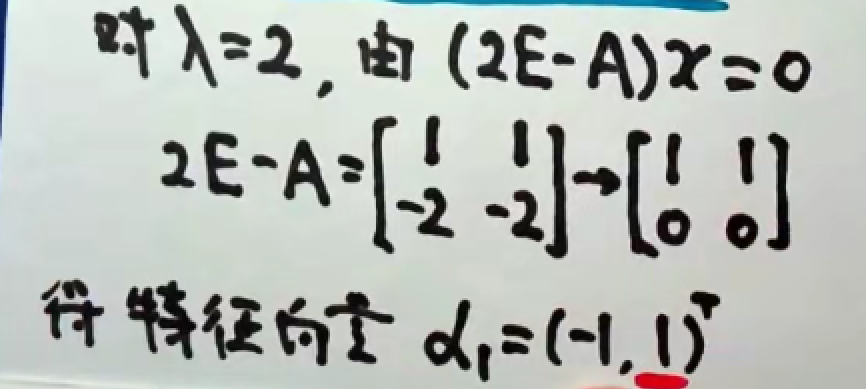 对 λ=2, 由 (2E-A)x=0
2E-A=[1 1; -2 -2]→[1 1; 0 0]
得 特征向量 α₁=(-1,1)ᵀ